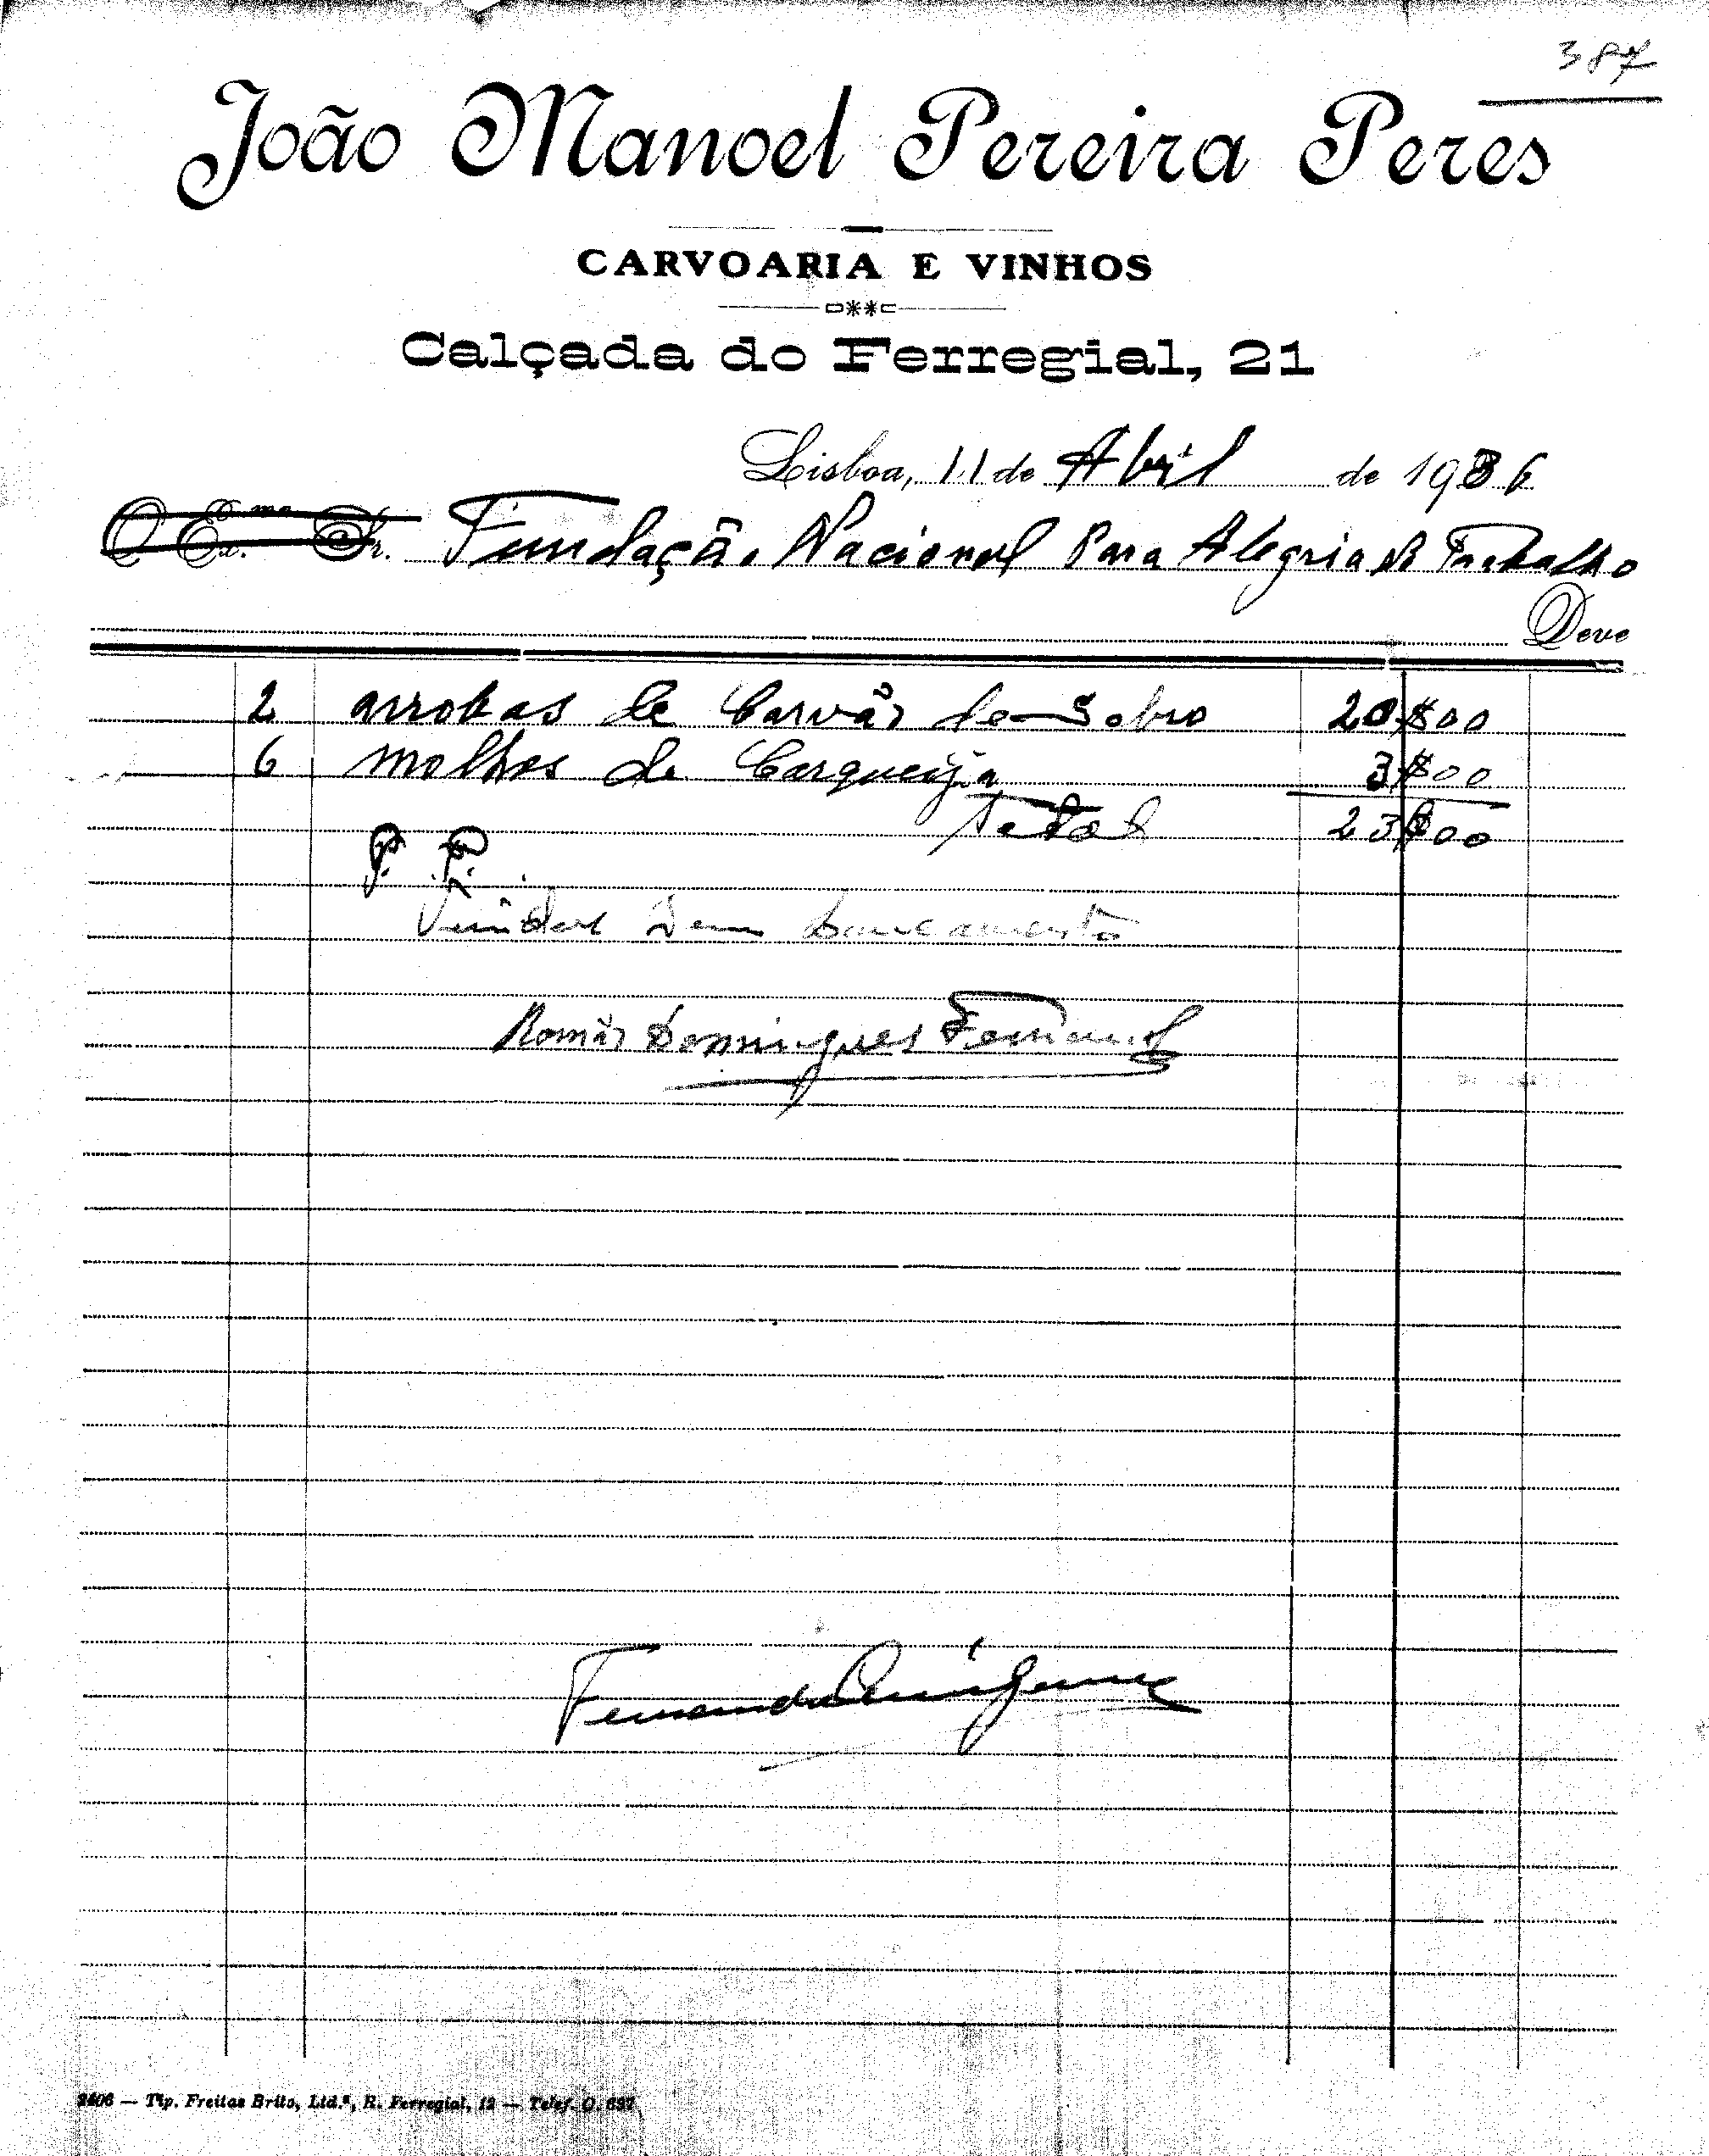 387
João Manoel Pereira Peres
CARVOARIA E VINHOS
Calçada do Ferregial, 21
Lisboa, 11 de Abril de 1936
O Ex.mo Sr. Fundação Nacional Para Alegria no Trabalho
Deve
2 arrobas de Carvão de Sobro 20$00
6 molhos de Carqueija 3$00
Total 23$00
Romão Domingues
Fernando
2406 — Tip. Freitas Brito, Ltd.ª, R. Ferregial, 12 — Telef. O. 697